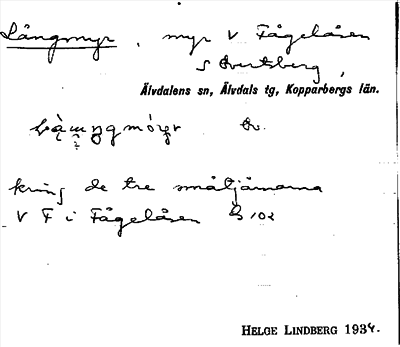 Långmyr, myr V Fågelåsen
S Överstberg,
Älvdalens sn, Älvdals tg, Kopparbergs län.
kring de tre småtjärnarna
V F i Fågelåsen
HELGE LINDBERG 1934.